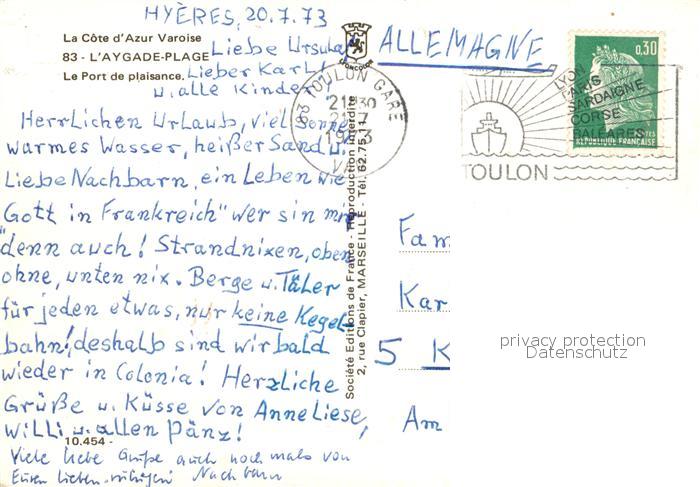 HYÈRES, 20.7.73
La Côte d'Azur Varoise
83 - L'AYGADE-PLAGE
Le Port de plaisance.
Liebe Ursula,
Lieber Karl
u. alle Kinder!
Herrlichen Urlaub, viel Sonne
warmes Wasser, heißer Sand u.
Liebe Nachbarn, ein Leben wie
Gott in Frankreich" wer sin mir
"denn auch! Strandnixen, oben
ohne, unten nix. Berge u. Täler
für jeden etwas, nur keine Kegel-
bahn! deshalb sind wir bald
wieder in Colonia! Herzliche
Grüße u. Küsse von AnneLiese,
Willi u. allen Pänz!
10.454 -
Viele liebe Grüße auch noch mals von
Euren lieben Nachbarn
Société Editions de France - Reproduction Interdite
2, rue Clapier, MARSEILLE - Tél. 62.75.14
SOFCOLOR
ALLEMAGNE
83 TOULON GARE
21H30
21-7
1973
VAR
LYON
PARIS
SARDAIGNE
CORSE
BALEARES
TOULON
0,30
POSTES
REPUBLIQUE FRANÇAISE
Fam
Kar
5 K
Am
privacy protection
Datenschutz